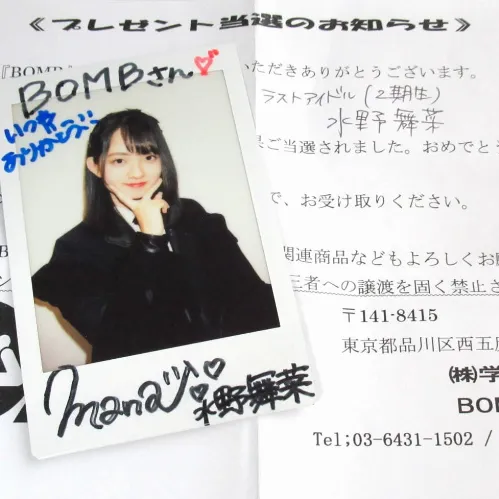 《プレゼント当選のお知らせ》
『BOMB
いただきありがとうございます。
ラストアイドル(2期生)
水野舞菜
ご当選されました。おめでとう
で、お受け取りください。
関連商品などもよろしくお願
三者への譲渡を固く禁止さ
〒141-8415
東京都品川区西五反
㈱学
BOM
Tel;03-6431-1502 /
BOMBさん
いつも
ありがとう
mana
水野舞菜